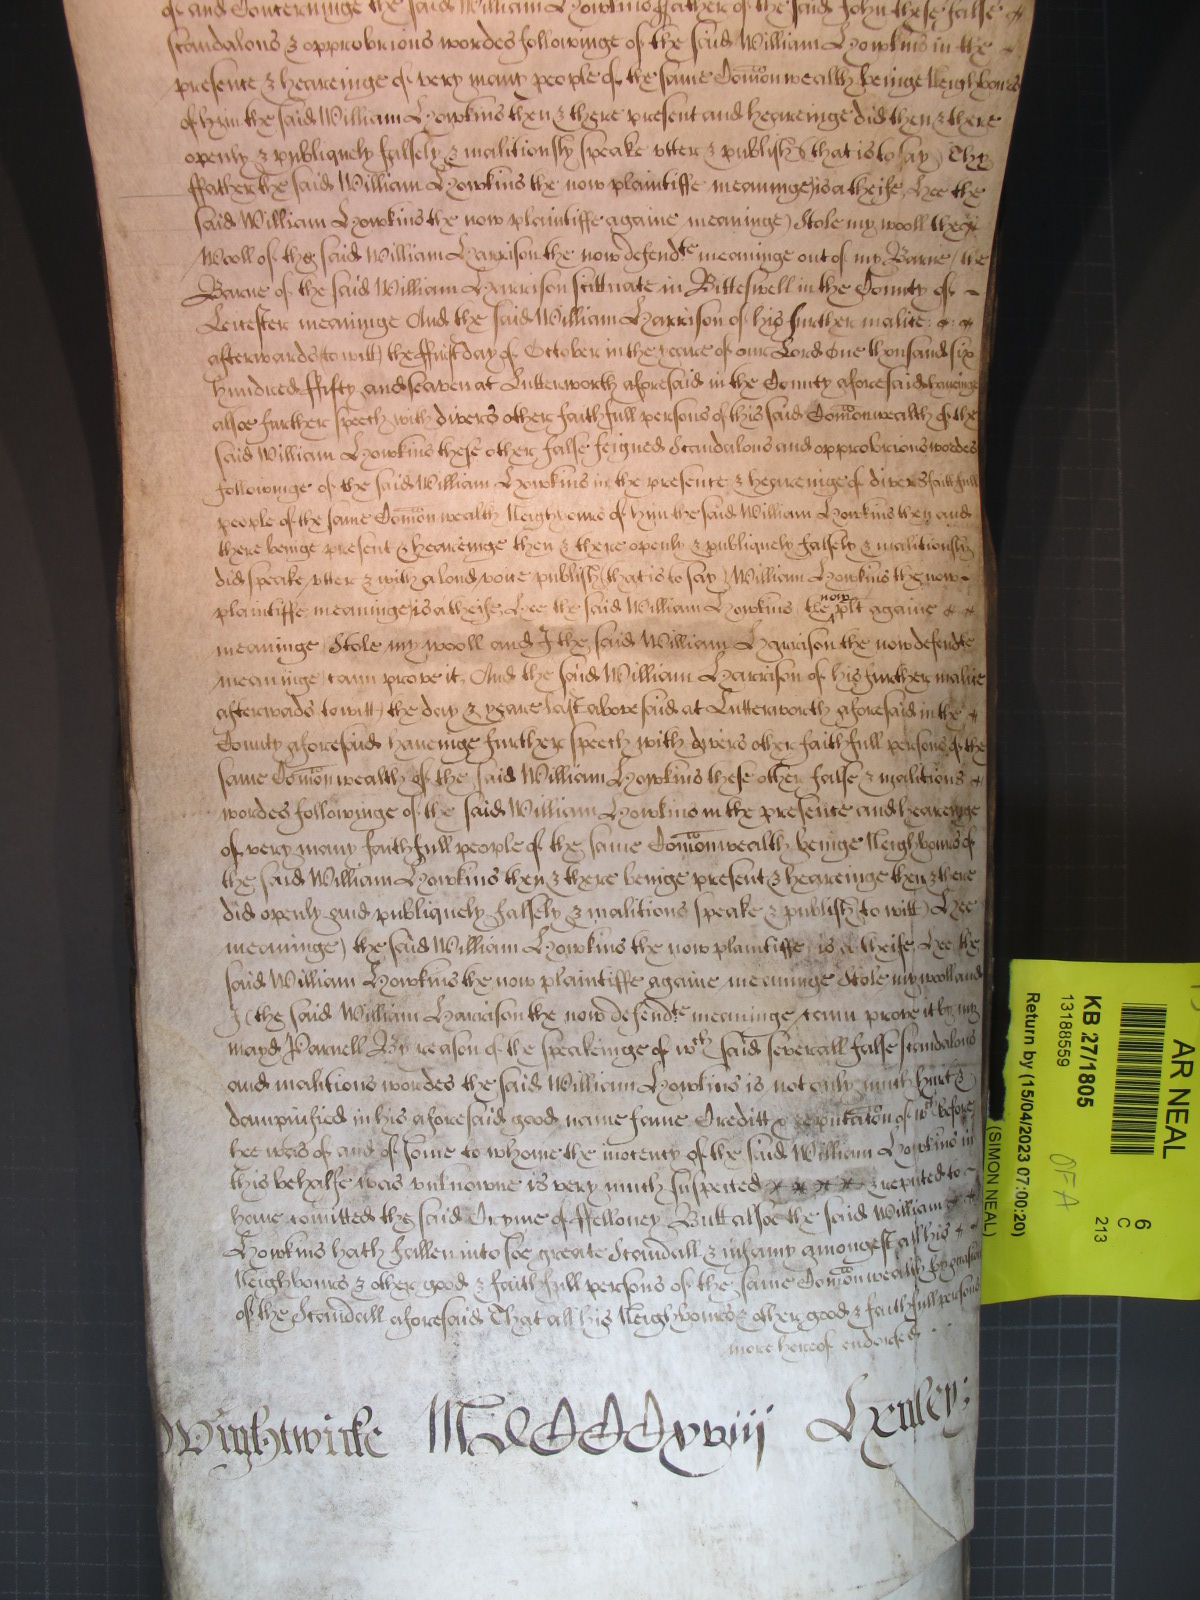 of and Concerninge the said William Howkins ffather of the said John these false
scandalous & opprobrious wordes followinge of the said William Howkins in the
presence & heareinge of very many people of the same Comonwealth beinge Neighbours
of him the said William Howkins then & there present and heareinge did then & there
openly & publiquely falsely & malitiously speake utter & publish (that is to say) Thy
ffather (the said William Howkins the now plaintiffe meaninge) is a theife, Hee the
said William Howkins the now plaintiffe againe meaninge) Stole my wooll the
Wooll of the said William Harrison the now defendte meaninge out of my Barne / the
Barne of the said William Harrison scittuate in Bitteswell in the County of
Leicester meaninge And the said William Harrison of his further malice
afterwards to witt) the ffirst day of October in the yeare of our Lord One thousand six
hundred ffifty and seaven at Lutterworth aforesaid in the County aforesaid haveinge
alsoe further speech with divers other faithfull persons of this said Comonwealth of the
said William Howkins these other false feigned Scandalous and opprobrious wordes
followinge of the said William Howkins in the presence & heareinge of divers faithfull
people of the same Comonwealth Neighbours of him the said William Howkins then and
there beinge present & heareinge then & there openly & publiquely falsely & malitiously
did speake utter & with a loud voice publish (that is to say) William Howkins the now
plaintiffe meaninge) is a theife, Hee the said William Howkins the now plt againe
meaninge Stole my wooll and I the said William Harrison the now defendte
meaninge) cann prove it, And the said William Harrison of his further malice
afterwads to witt) the day & yeare last abovesaid at Lutterworth aforesaid in the
County aforesaid haveinge further speech with divers other faithfull persons of the
same Comonwealth of the said William Howkins these other false & malitious
wordes followinge of the said William Howkins in the presence and heareinge
of very many faithfull people of the same Comonwealth beinge Neighbours of
the said William Howkins then & there beinge present & heareinge then & there
did openly and publiquely falsely & malitious speake & publish (to witt) Hee
meaninge) the said William Howkins the now plaintiffe) is a theife, Hee the
said William Howkins the now plaintiffe againe meaninge Stole my wooll and
I (the said William Harrison the now defendte meaninge) cann prove it by my
mayd Parnell By reason of the speakeinge of wch said severall false scandalous
and malitious wordes the said William Howkins is not only much hurt &
dampnified in his aforesaid good name fame Creditt & reputation of wch before
hee was of and of some to whome the inocency of the said William Howkins in
this behalfe was unknowne is very much suspected & reputed to
have comitted the said Cryme of ffelloney Butt alsoe the said William
Howkins hath fallen into soe greate Scandall & infamy amongest all his
Neighbours & other good & faithfull persons of the same Comonwealth by occasion
of the Scandall aforesaid That all his Neighbours & other good & faithfull persons
more hereof endorsed
Wightwicke MdCCCxviij Henley
AR NEAL
KB 27/1805
13188559
Return by (15/04/2023 07:00:20)
(SIMON NEAL)
6
C
213
OF A